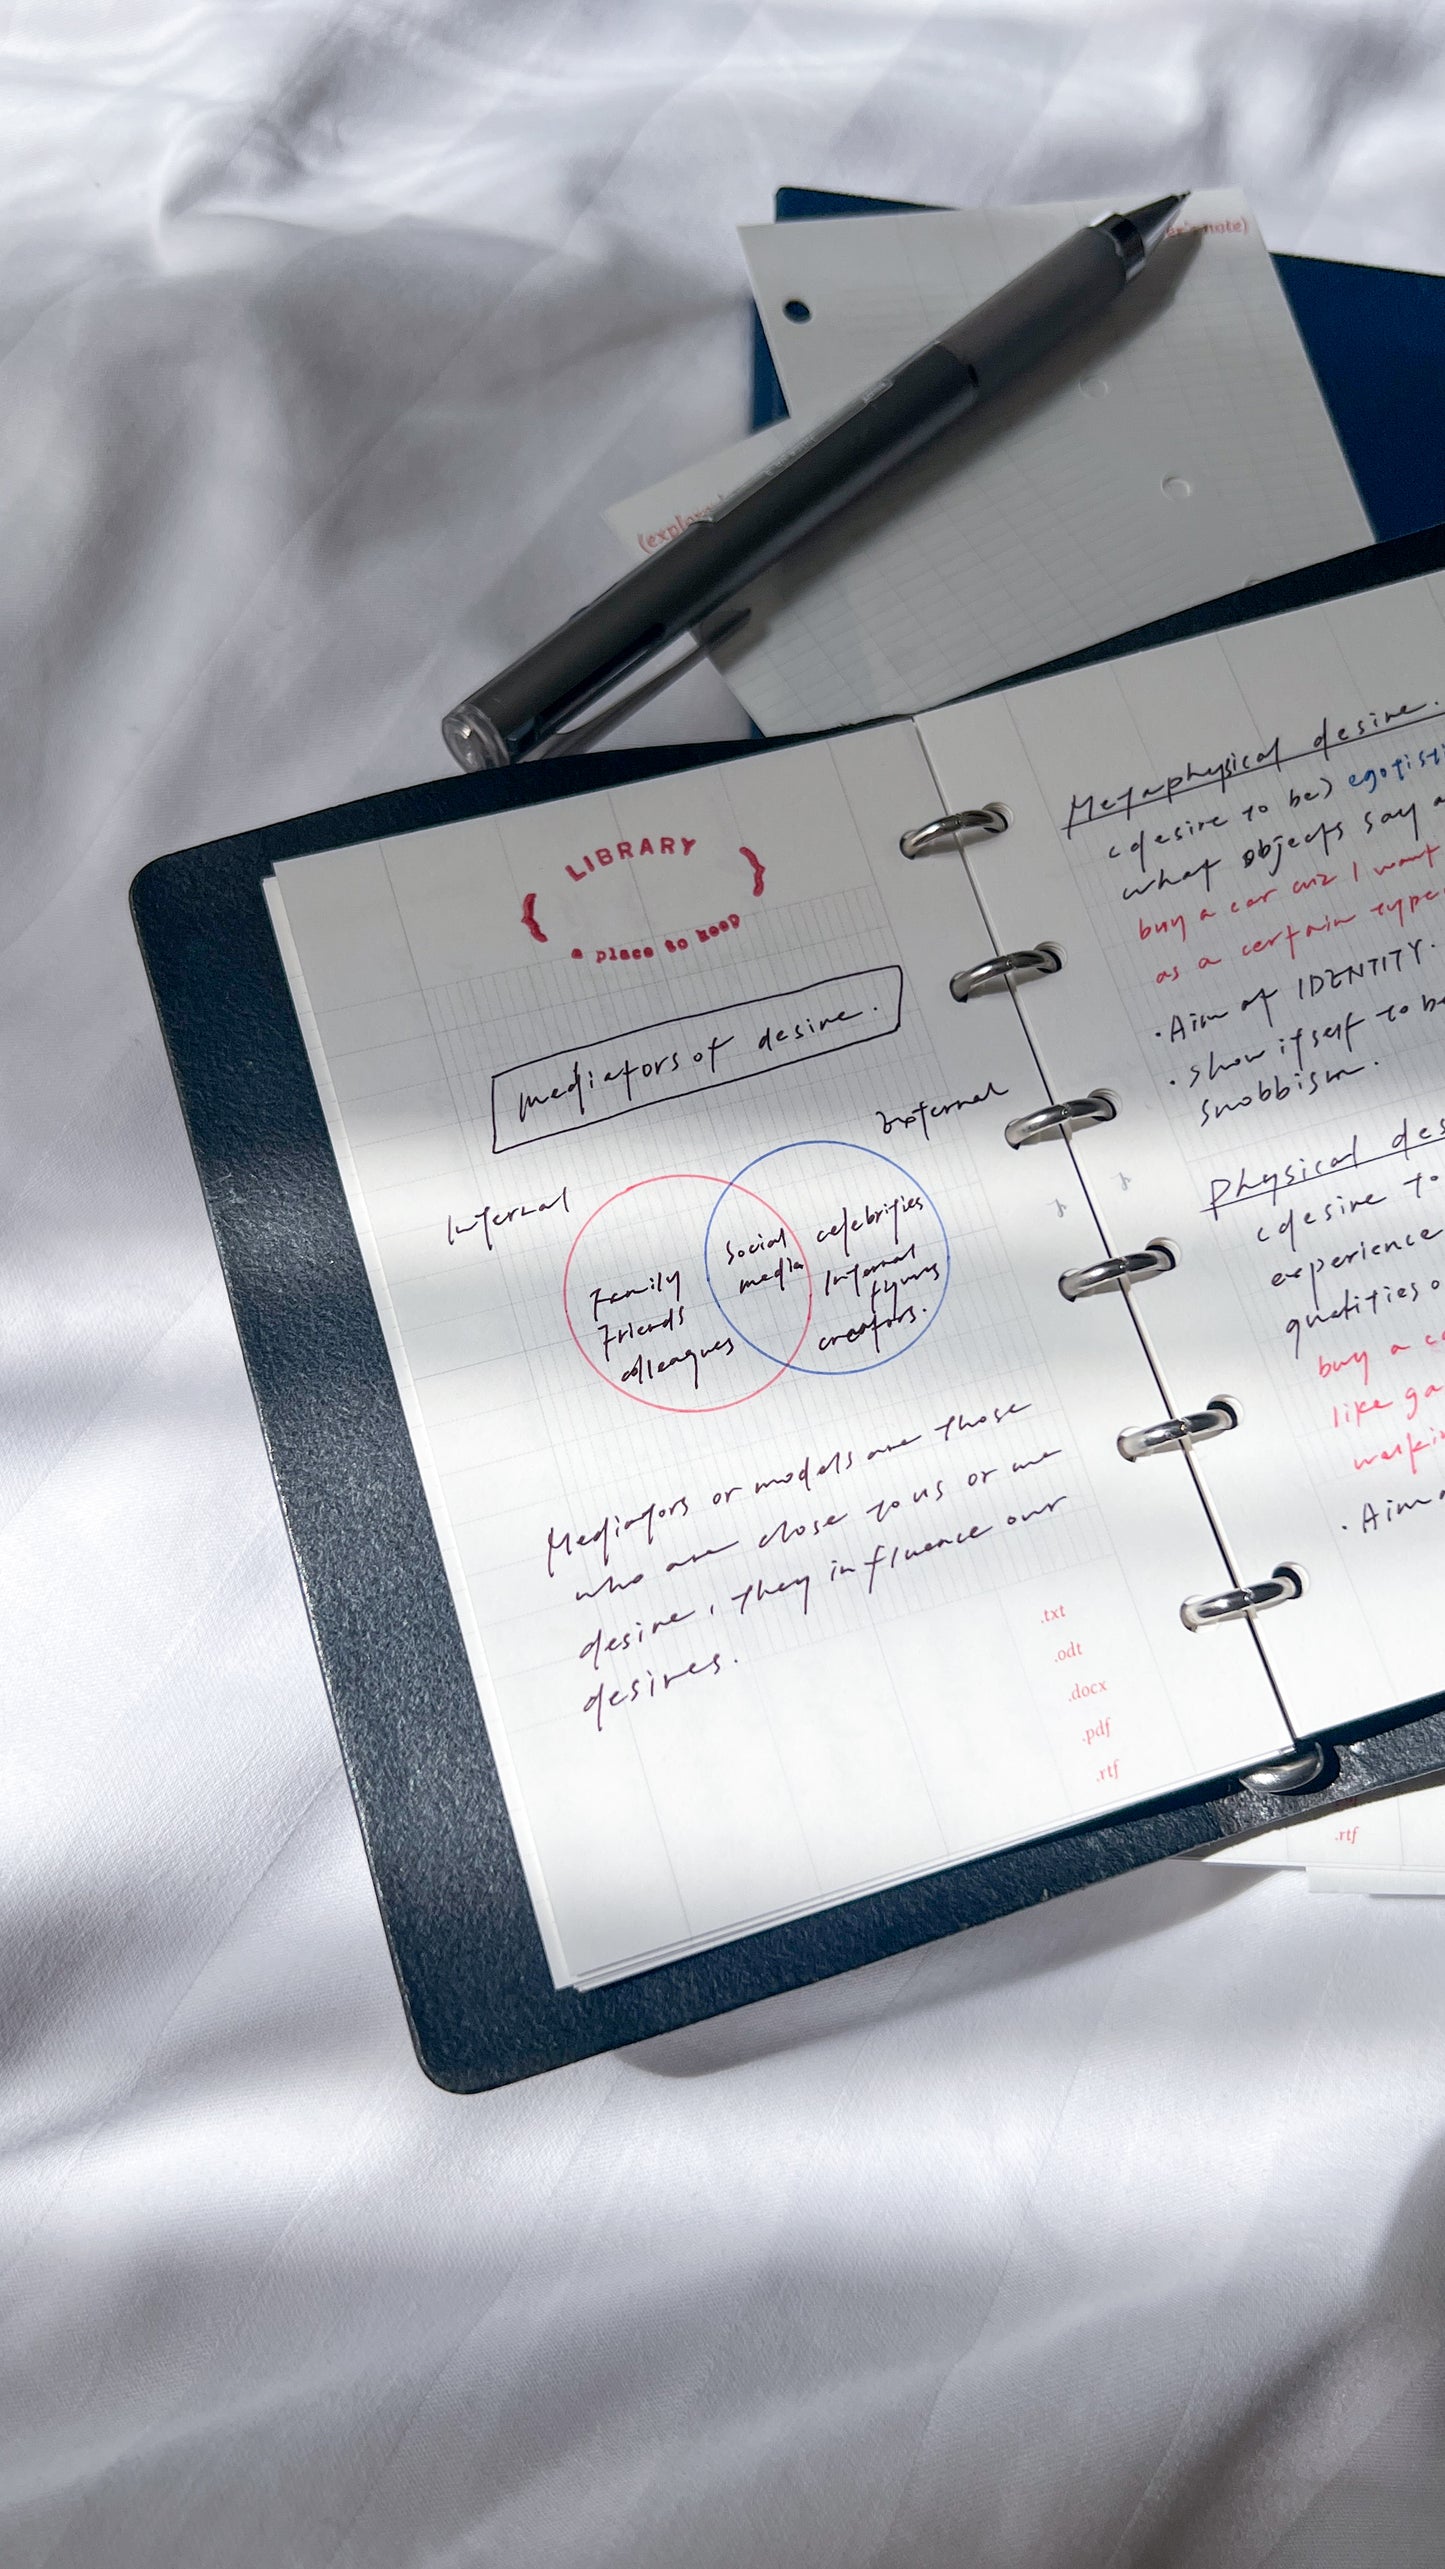 LIBRARY
{ }
a place to keep
mediators of desire.
External
Internal
Family
Friends
colleagues
Social
media
celebrities
Internal
figures
creators.
Mediators or models are those
who are close to us or we
desire, they influence our
desires.
.txt
.odt
.docx
.pdf
.rtf
Metaphysical desire.
(desire to be) egotisti
what objects say a
buy a car cuz I want
as a certain type
• Aim at IDENTITY.
• show itself to be
Snobbism.
Physical des
(desire to
experience
qualities o
buy a ca
like ga
walkin
• Aim a
.rtf